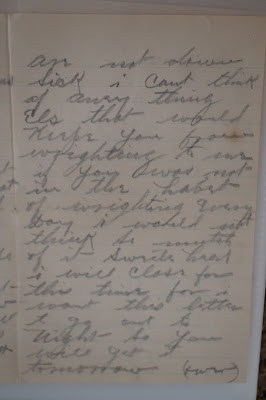 ar not down
sick i cant think
of aney thing
Els that would
Keepe you from
wrighting to me
if you was not
in the habet
of wrighting every
day i would not
think so mutch
of it Sweete heart
i will close for
this time for i
want this letter
to go out to
night so you
will get it
tomorrow (over)